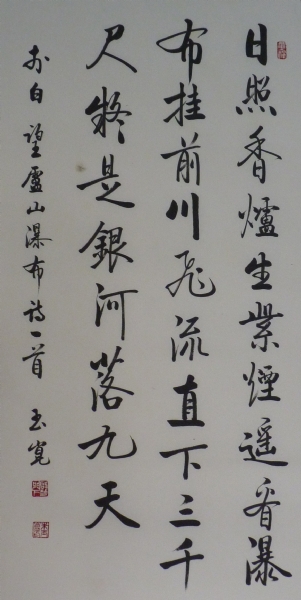 日照香爐生紫煙遥看瀑
布挂前川飛流直下三千
尺疑是銀河落九天
李白望廬山瀑布詩一首 玉寬